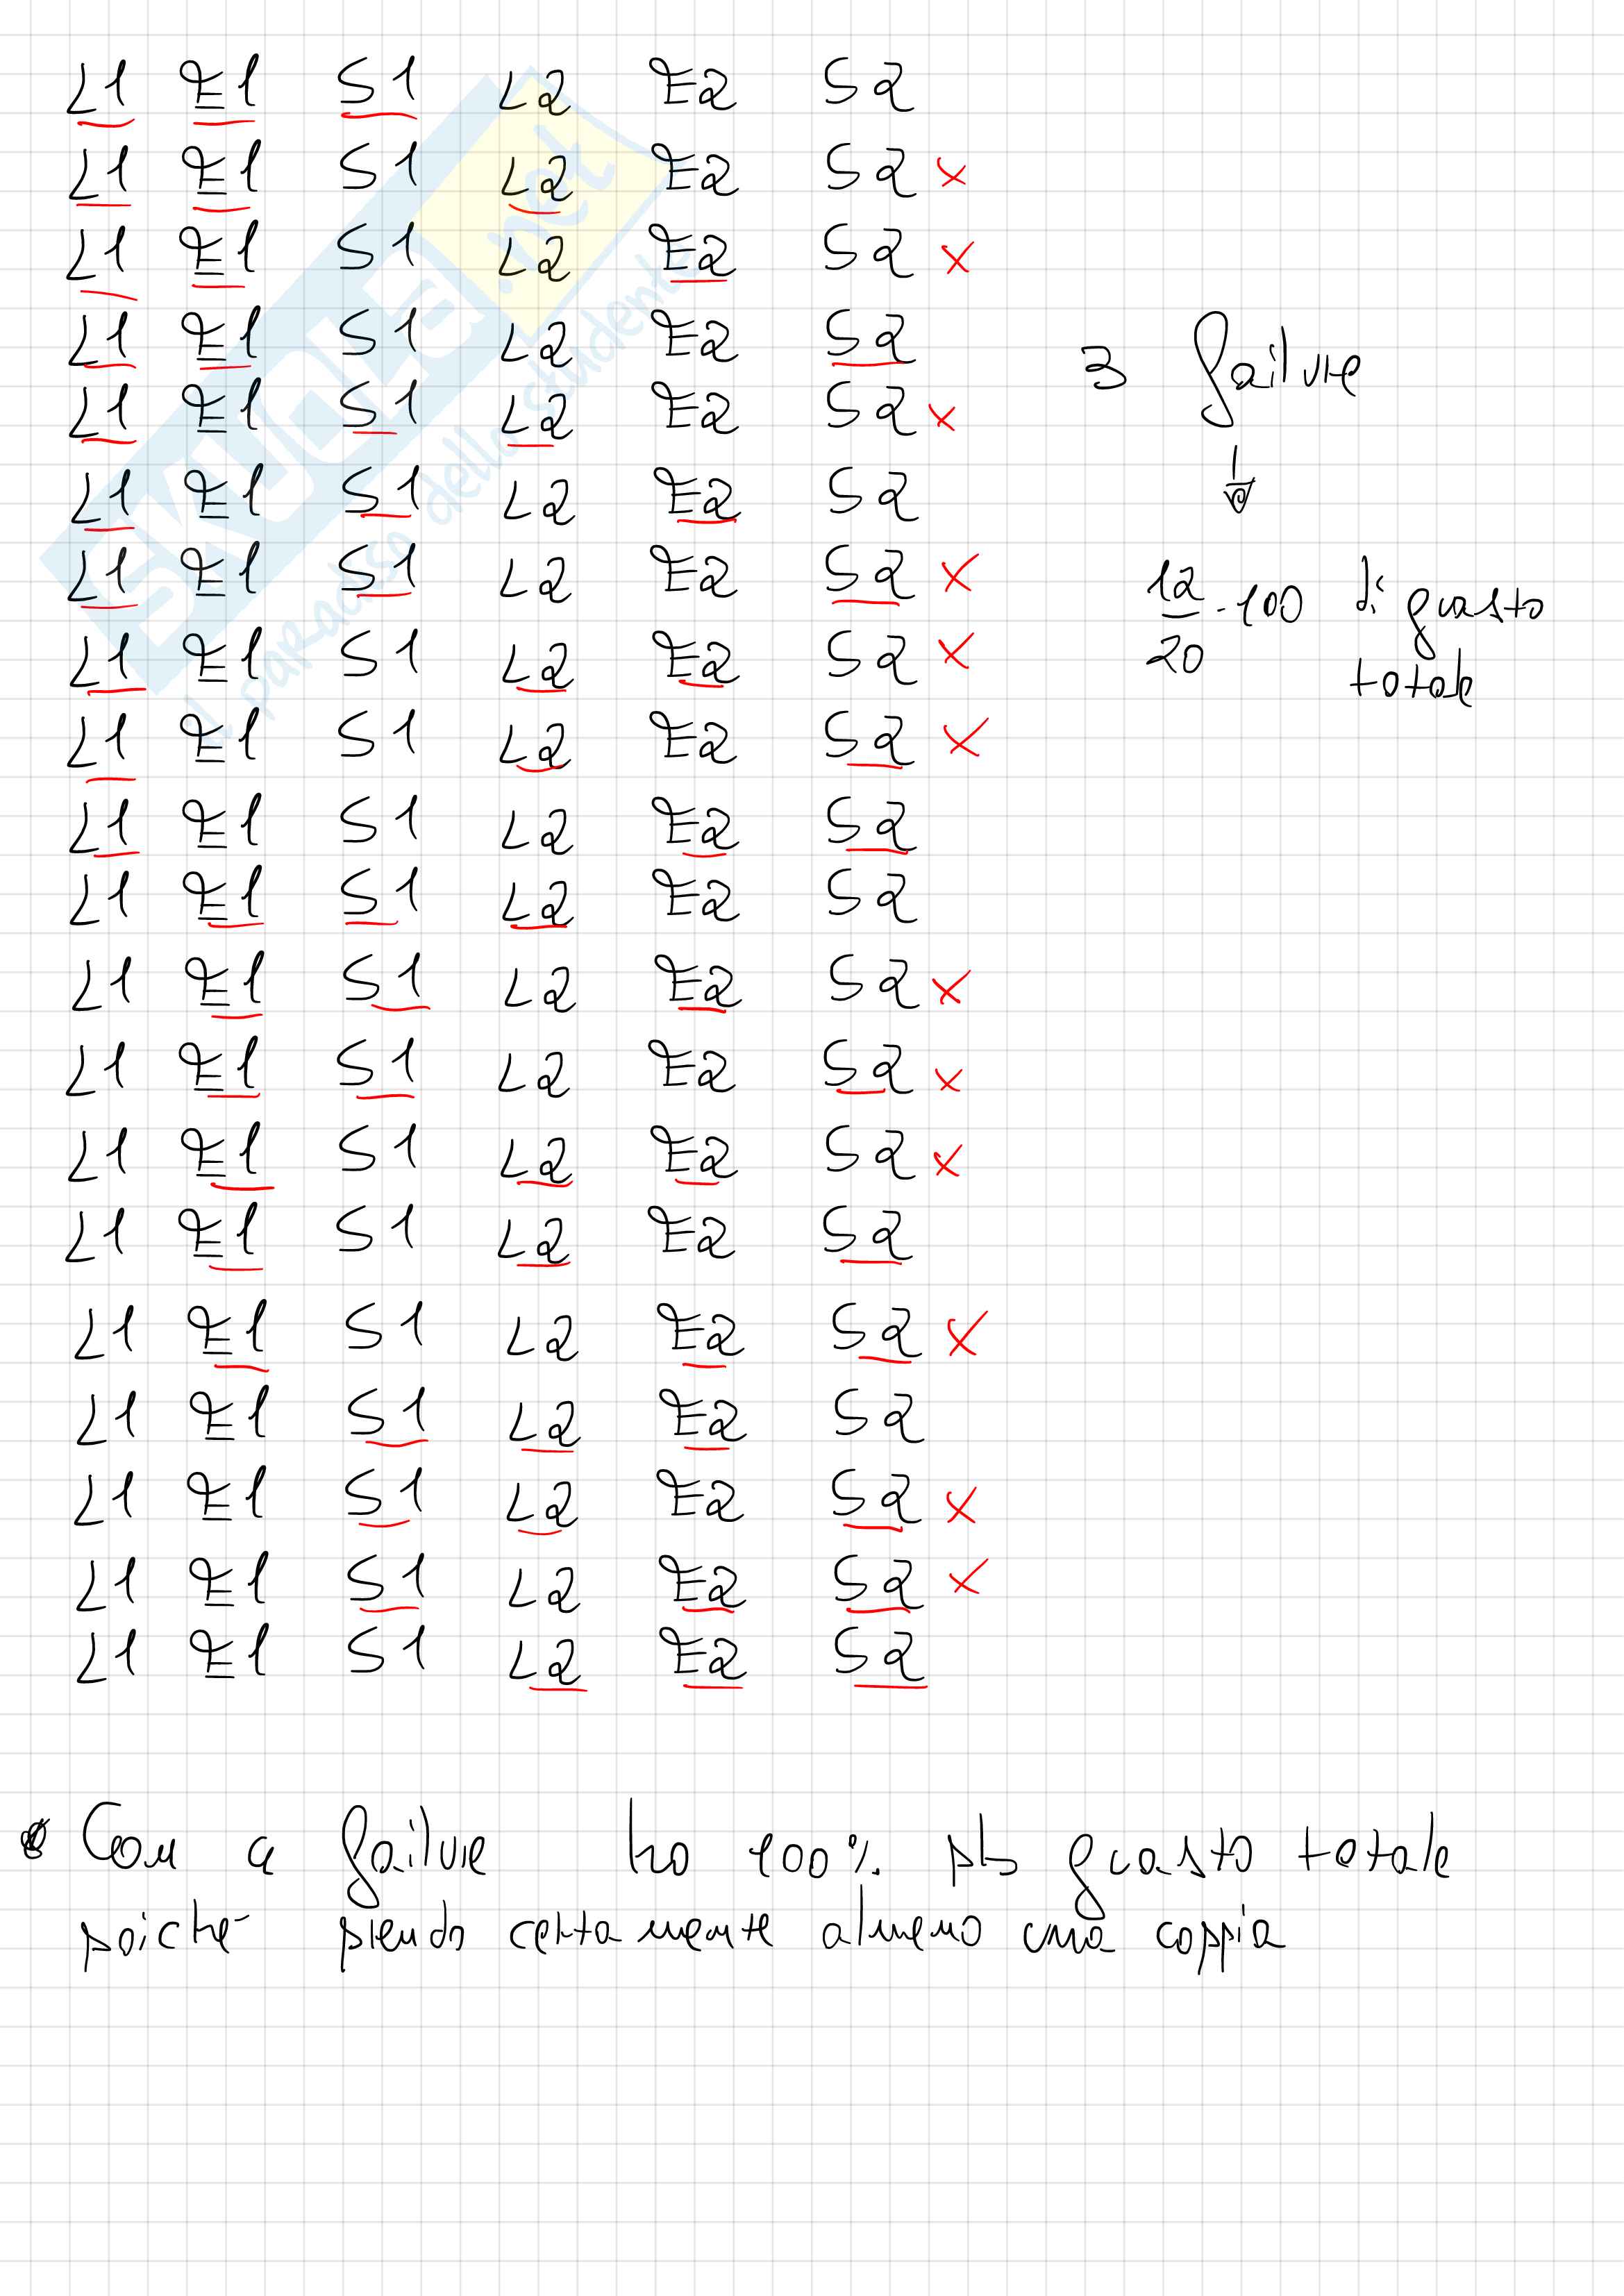 L1 E1 S1 L2 E2 S2
L1 E1 S1 L2 E2 S2 x
L1 E1 S1 L2 E2 S2 x
L1 E1 S1 L2 E2 S2
3 failure
L1 E1 S1 L2 E2 S2 x
L1 E1 S1 L2 E2 S2
L1 E1 S1 L2 E2 S2 x
12/20 · 100 di guasto
totale
L1 E1 S1 L2 E2 S2 x
L1 E1 S1 L2 E2 S2 x
L1 E1 S1 L2 E2 S2
L1 E1 S1 L2 E2 S2
L1 E1 S1 L2 E2 S2 x
L1 E1 S1 L2 E2 S2 x
L1 E1 S1 L2 E2 S2 x
L1 E1 S1 L2 E2 S2
L1 E1 S1 L2 E2 S2 x
L1 E1 S1 L2 E2 S2
L1 E1 S1 L2 E2 S2 x
L1 E1 S1 L2 E2 S2 x
L1 E1 S1 L2 E2 S2
Con 4 failure ho 100% pb guasto totale
poiché perdo certamente almeno una coppia
SKUOLA.net
il paradiso dello studente